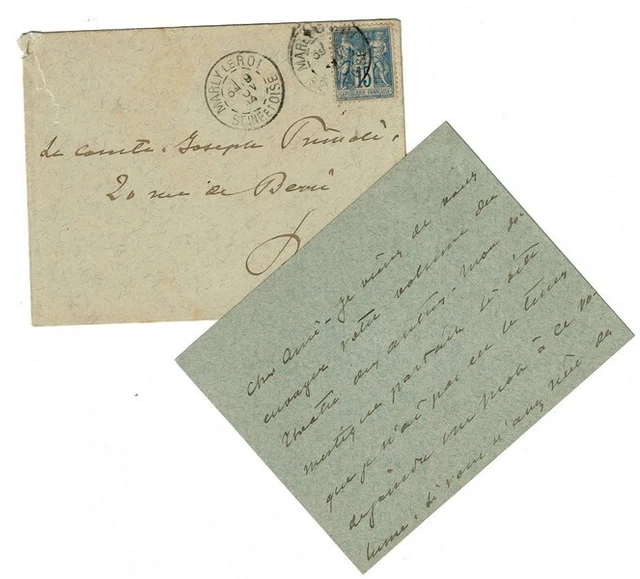 MARLY LE ROI
9
NOV
94
SEINE ET OISE
MARLY
15
REPUBLIQUE FRANÇAISE
Le comte Joseph Primoli.
20 rue de Berri
cher ami - je viens de vous
envoyer votre volume du
théâtre des autres. mon do-
mestique partait si vite
que je n'ai pas eu le temps
de joindre un mot à ce vo-
lume. Si vous n'avez rien de